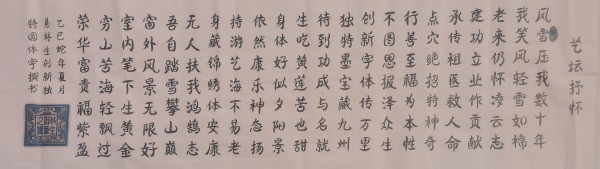 艺坛抒怀
风雪压我数十年
我笑风轻雪如棉
老来仍怀凌云志
建功立业作贡献
承传祖医救人命
点穴绝招特神奇
行善至福为本性
不图恩报泽众生
创新字体传万里
独特墨宝藏九州
待到功成与名就
生吃黄莲苦也甜
身体好似夕阳景
依然康乐神态扬
持游艺海不易老
身藏锦绣体安康
无人扶我鸿鹄志
吾自踏雪攀山巅
窗外风景无限好
室内笔下生黄金
穷山苦海轻飘过
荣华富贵福紫盈
乙巳蛇年夏月
易林生创新独
特圆体字撰书